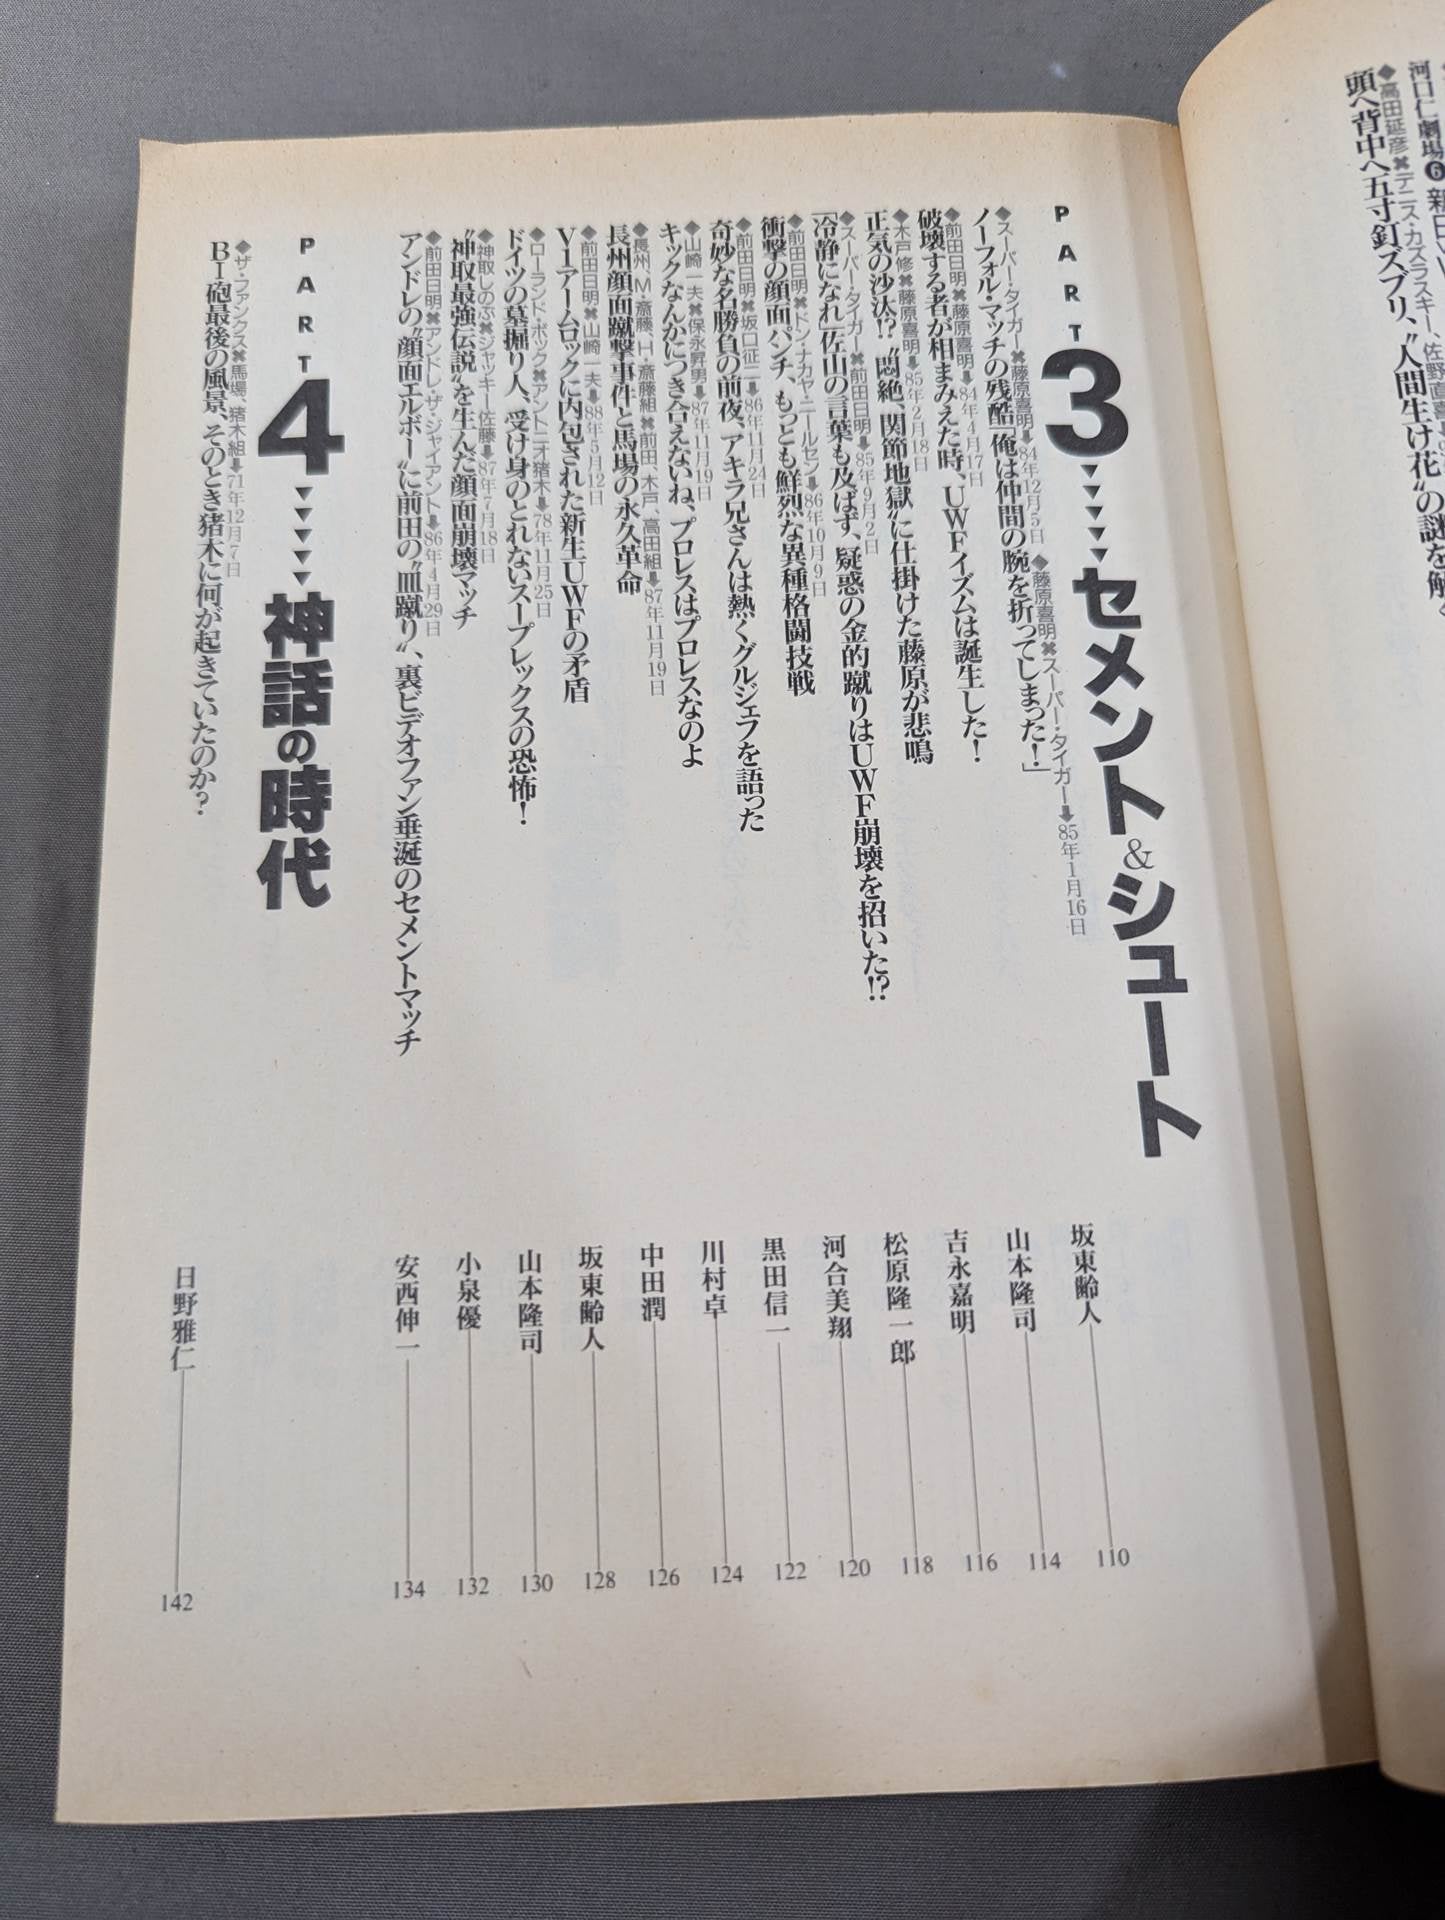 河口仁劇場❻
◆高田延彦✖デニス・カズラスキー、佐野直喜
頭へ背中へ五寸釘ズブリ、〝人間生け花〟の謎を解く
PART3▼▼▼▼▼セメント&シュート
◆スーパー・タイガー✖藤原喜明➡84年12月5日 ◆藤原喜明✖スーパー・タイガー➡85年1月16日
ノーフォル・マッチの残酷「俺は仲間の腕を折ってしまった！」
坂東齢人 110
◆前田日明✖藤原喜明➡84年4月17日
破壊する者が相まみえた時、UWFイズムは誕生した！
山本隆司 114
◆木戸修✖藤原喜明➡85年2月18日
正気の沙汰!?〝悶絶、関節地獄〟に仕掛けた藤原が悲鳴
吉永嘉明 116
◆スーパー・タイガー✖前田日明➡85年9月2日
「冷静になれ」佐山の言葉も及ばず、疑惑の金的蹴りはUWF崩壊を招いた!?
松原隆一郎 118
◆前田日明✖ドン・ナカヤ・ニールセン➡86年10月9日
衝撃の顔面パンチ、もっとも鮮烈な異種格闘技戦
河合美翔 120
◆前田日明✖坂口征二➡86年11月24日
奇妙な名勝負の前夜、アキラ兄さんは熱くグルジェフを語った
黒田信一 122
◆山崎一夫✖保永昇男➡87年11月19日
キックなんかにつき合えないね、プロレスはプロレスなのよ
川村卓 124
◆長州、M・斎藤、H・斎藤組✖前田、木戸、高田組➡87年11月19日
長州顔面蹴撃事件と馬場の永久革命
中田潤 126
◆前田日明✖山崎一夫➡88年5月12日
V1アームロックに内包された新生UWFの矛盾
坂東齢人 128
◆ローランド・ボック✖アントニオ猪木➡78年11月25日
ドイツの墓掘り人、受け身のとれないスープレックスの恐怖！
山本隆司 130
◆神取しのぶ✖ジャッキー佐藤➡87年7月18日
〝神取最強伝説〟を生んだ顔面崩壊マッチ
小泉優 132
◆前田日明✖アンドレ・ザ・ジャイアント➡86年4月29日
アンドレの〝顔面エルボー〟に前田の〝皿蹴り〟、裏ビデオファン垂涎のセメントマッチ
安西伸一 134
PART4▼▼▼▼▼神話の時代
◆ザ・ファンクス✖馬場、猪木組➡71年12月7日
BI砲最後の風景、そのとき猪木に何が起きていたのか？
日野雅仁 142